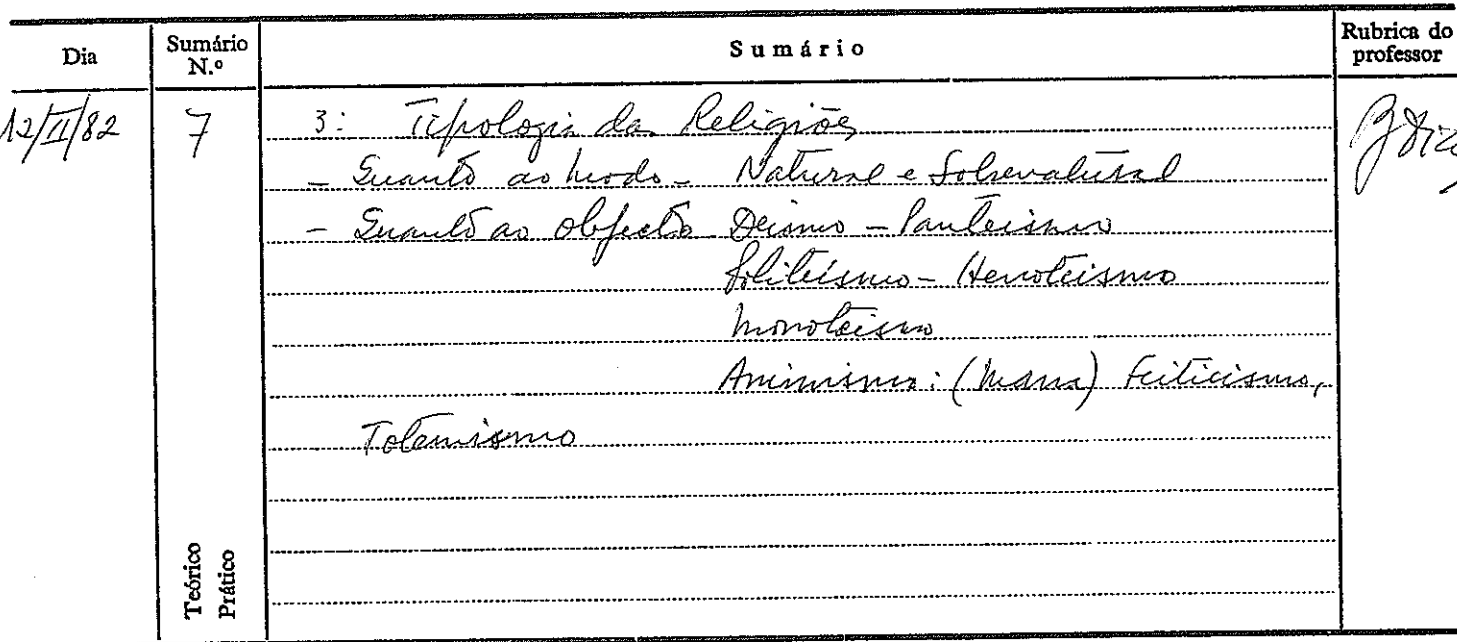 Dia
Sumário N.º
Sumário
Rubrica do professor
12/II/82
7
3: Tipologia das Religiões
- Quanto ao modo - Natural e Sobrenatural
- Quanto ao objecto Deismo - Panteismo
Politeísmo - Henoteismo
Monoteismo
Animismo: (Mana) Feiticismo,
Totemismo
Teórico
Prático